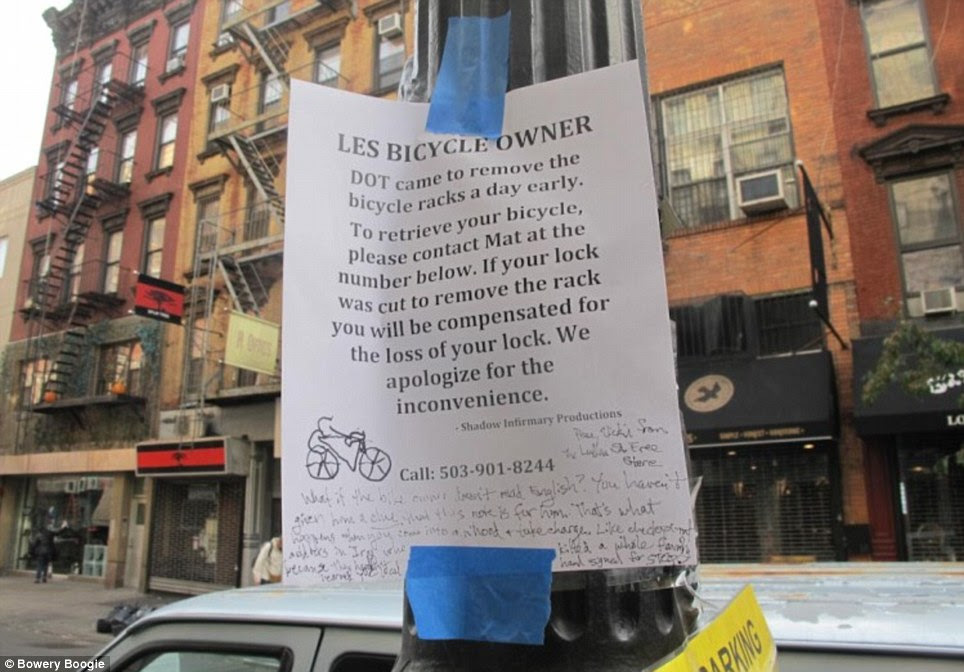 LES BICYCLE OWNER
DOT came to remove the
bicycle racks a day early.
To retrieve your bicycle,
please contact Mat at the
number below. If your lock
was cut to remove the rack
you will be compensated for
the loss of your lock. We
apologize for the
inconvenience.
- Shadow Infirmary Productions
from
The St Free
Store
Call: 503-901-8244
What if the bike owner doesn't read English? You haven't
given him a clue that this note is for him. That's what
happens when you come into a n'hood & take charge. Like
in killed a whole family
because they hand signal for stop.
PARKING
© Bowery Boogie